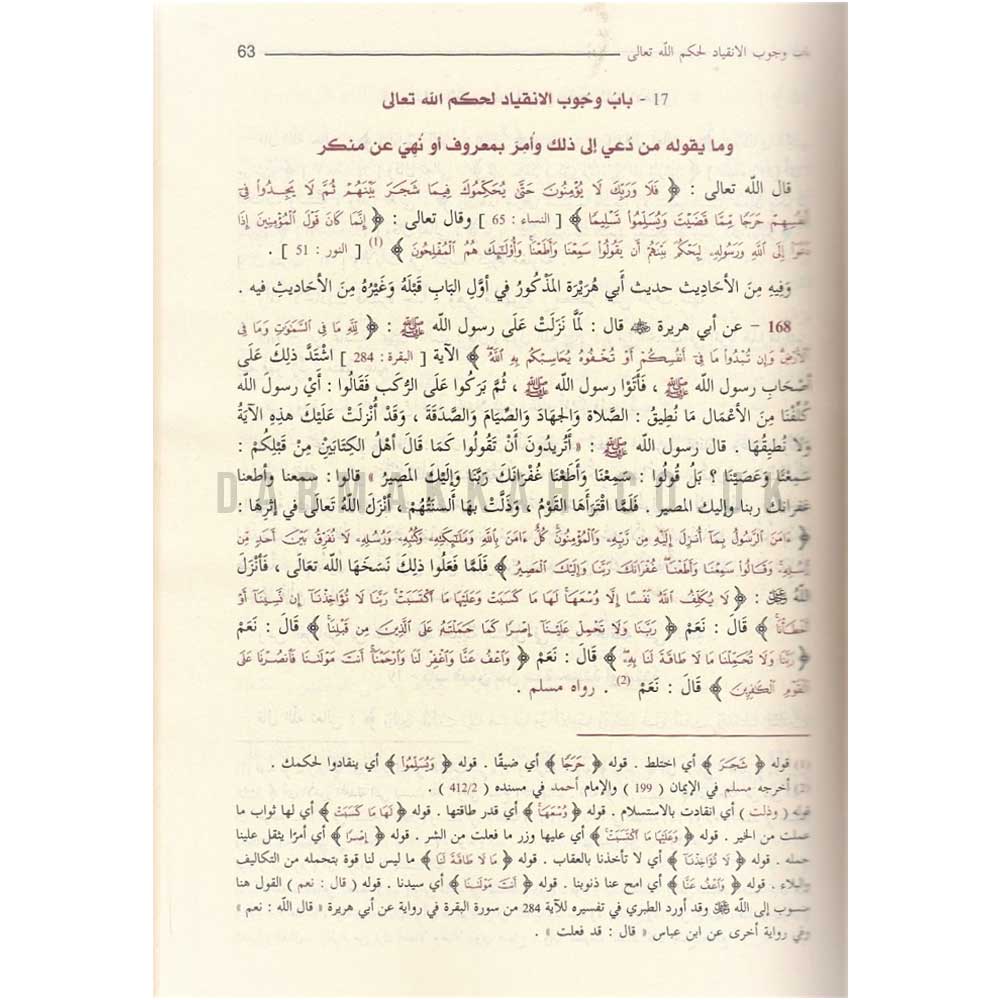 باب وجوب الانقياد لحكم الله تعالى 63
17 - بابُ وجُوب الانقياد لحكم الله تعالى
وما يقوله من دُعي إلى ذلك وأُمِرَ بمعروف أو نُهيَ عن منكر
قال الله تعالى : ﴿ فَلَا وَرَبِّكَ لَا يُؤْمِنُونَ حَتَّىٰ يُحَكِّمُوكَ فِيمَا شَجَرَ بَيْنَهُمْ ثُمَّ لَا يَجِدُوا۟ فِىٓ
أَنفُسِهِمْ حَرَجًا مِّمَّا قَضَيْتَ وَيُسَلِّمُوا۟ تَسْلِيمًا ﴾ [ النساء : 65 ] وقال تعالى : ﴿ إِنَّمَا كَانَ قَوْلَ ٱلْمُؤْمِنِينَ إِذَا
دُعُوٓا۟ إِلَى ٱللَّهِ وَرَسُولِهِۦ لِيَحْكُمَ بَيْنَهُمْ أَن يَقُولُوا۟ سَمِعْنَا وَأَطَعْنَا ۚ وَأُو۟لَٰٓئِكَ هُمُ ٱلْمُفْلِحُونَ ﴾ (1) [ النور : 51 ] .
وَفِيهِ مِنَ الأحَادِيث حديث أَبي هُرَيْرَةَ المَذْكُورُ في أوَّلِ البَابِ قَبْلَهُ وَغَيْرُهُ مِنَ الأحَادِيثِ فيه .
168 - عن أبي هريرة رضي الله عنه قال : لَمَّا نَزَلَتْ عَلَى رسول الله ﷺ : ﴿ لِّلَّهِ مَا فِى ٱلسَّمَٰوَٰتِ وَمَا فِى
ٱلْأَرْضِ ۗ وَإِن تُبْدُوا۟ مَا فِىٓ أَنفُسِكُمْ أَوْ تُخْفُوهُ يُحَاسِبْكُم بِهِ ٱللَّهُ ۖ ﴾ الآية [ البقرة : 284 ] اشْتَدَّ ذلِكَ عَلَى
أصْحَابِ رسول الله ﷺ ، فَأَتَوْا رسول الله ﷺ ، ثُمَّ بَرَكُوا عَلَى الرُّكَبِ فَقَالُوا : أَيْ رسولَ الله
كُلِّفْنَا مِنَ الأَعْمَالِ مَا نُطِيقُ : الصَّلاةَ وَالجِهَادَ وَالصِّيَامَ وَالصَّدَقَةَ ، وَقَدْ أُنْزِلَتْ عَلَيْكَ هذِهِ الآيَةُ
وَلا نُطِيقُهَا . قال رسول الله ﷺ : « أَتُرِيدُونَ أَنْ تَقُولُوا كَمَا قَالَ أَهْلُ الكِتَابَيْنِ مِنْ قَبْلِكُمْ :
سَمِعْنَا وَعَصَيْنَا ؟ بَلْ قُولُوا : سَمِعْنَا وَأَطَعْنَا غُفْرَانَكَ رَبَّنَا وَإِلَيْكَ المَصِيرُ » قالوا : سمعنا وأطعنا
DARMAKKAH.CO.UK
غفرانك ربنا وإليك المصير . فَلَمَّا اقْتَرَأَهَا القَوْمُ ، وَذَلَّتْ بهَا أَلسنَتُهُمْ ، أَنْزَلَ اللهُ تَعَالَى في إثرِهَا :
﴿ ءَامَنَ ٱلرَّسُولُ بِمَآ أُنزِلَ إِلَيْهِ مِن رَّبِّهِۦ وَٱلْمُؤْمِنُونَ ۚ كُلٌّ ءَامَنَ بِٱللَّهِ وَمَلَٰٓئِكَتِهِۦ وَكُتُبِهِۦ وَرُسُلِهِۦ لَا نُفَرِّقُ بَيْنَ أَحَدٍ مِّن
رُّسُلِهِۦ ۚ وَقَالُوا۟ سَمِعْنَا وَأَطَعْنَا ۖ غُفْرَانَكَ رَبَّنَا وَإِلَيْكَ ٱلْمَصِيرُ ﴾ فَلَمَّا فَعَلُوا ذلِكَ نَسَخَهَا الله تَعَالَى ، فَأَنْزَلَ
اللهُ عز وجل : ﴿ لَا يُكَلِّفُ ٱللَّهُ نَفْسًا إِلَّا وُسْعَهَا ۚ لَهَا مَا كَسَبَتْ وَعَلَيْهَا مَا ٱكْتَسَبَتْ ۗ رَبَّنَا لَا تُؤَاخِذْنَآ إِن نَّسِينَآ أَوْ
أَخْطَأْنَا ۚ ﴾ قَالَ : نَعَمْ ﴿ رَبَّنَا وَلَا تَحْمِلْ عَلَيْنَآ إِصْرًا كَمَا حَمَلْتَهُۥ عَلَى ٱلَّذِينَ مِن قَبْلِنَا ۚ ﴾ قَالَ : نَعَمْ
﴿ رَبَّنَا وَلَا تُحَمِّلْنَا مَا لَا طَاقَةَ لَنَا بِهِۦ ۖ ﴾ قَالَ : نَعَمْ ﴿ وَٱعْفُ عَنَّا وَٱغْفِرْ لَنَا وَٱرْحَمْنَآ ۚ أَنتَ مَوْلَىٰنَا فَٱنصُرْنَا عَلَى
ٱلْقَوْمِ ٱلْكَٰفِرِينَ ﴾ قَالَ : نَعَمْ (2) . رواه مسلم .
(1) قوله ﴿ شَجَرَ ﴾ أي اختلط . قوله ﴿ حَرَجًا ﴾ أي ضيقًا . قوله ﴿ وَيُسَلِّمُوا۟ ﴾ أي ينقادوا لحكمك .
(2) أخرجه مسلم في الإيمان ( 199 ) والإمام أحمد في مسنده ( 412/2 ) .
قوله ( وذلت ) أي انقادت بالاستسلام . قوله ﴿ وُسْعَهَا ۚ ﴾ أي قدر طاقتها . قوله ﴿ لَهَا مَا كَسَبَتْ ﴾ أي لها ثواب ما
عملت من الخير . قوله ﴿ وَعَلَيْهَا مَا ٱكْتَسَبَتْ ۗ ﴾ أي عليها وزر ما فعلت من الشر . قوله ﴿ إِصْرًا ﴾ أي أمرًا يثقل علينا
حمله . قوله ﴿ لَا تُؤَاخِذْنَآ ﴾ أي لا تأخذنا بالعقاب . قوله ﴿ مَا لَا طَاقَةَ لَنَا ﴾ ما ليس لنا قوة بتحمله من التكاليف
والبلاء . قوله ﴿ وَٱعْفُ عَنَّا ﴾ أي امح عنا ذنوبنا . قوله ﴿ أَنتَ مَوْلَىٰنَا ﴾ أي سيدنا . قوله ( قال : نعم ) القول هنا
منسوب إلى الله ﷻ وقد أورد الطبري في تفسيره للآية 284 من سورة البقرة في رواية عن أبي هريرة « قال الله : نعم »
وفي رواية أخرى عن ابن عباس « قال : قد فعلت » .